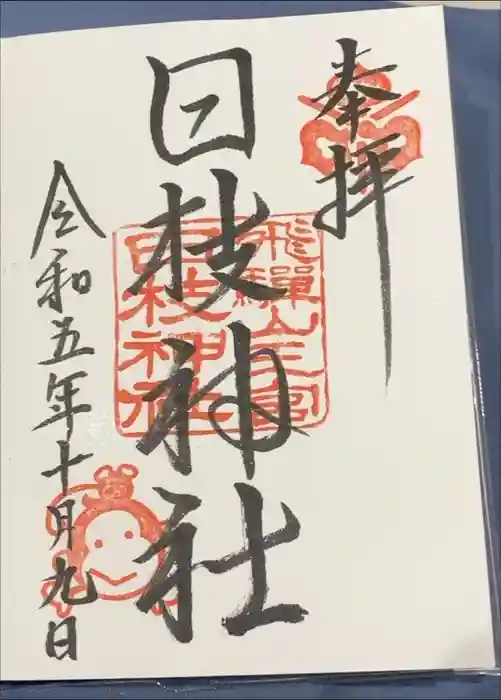 奉拝
日枝神社
飛騨山王宮
日枝神社
令和五年十月九日